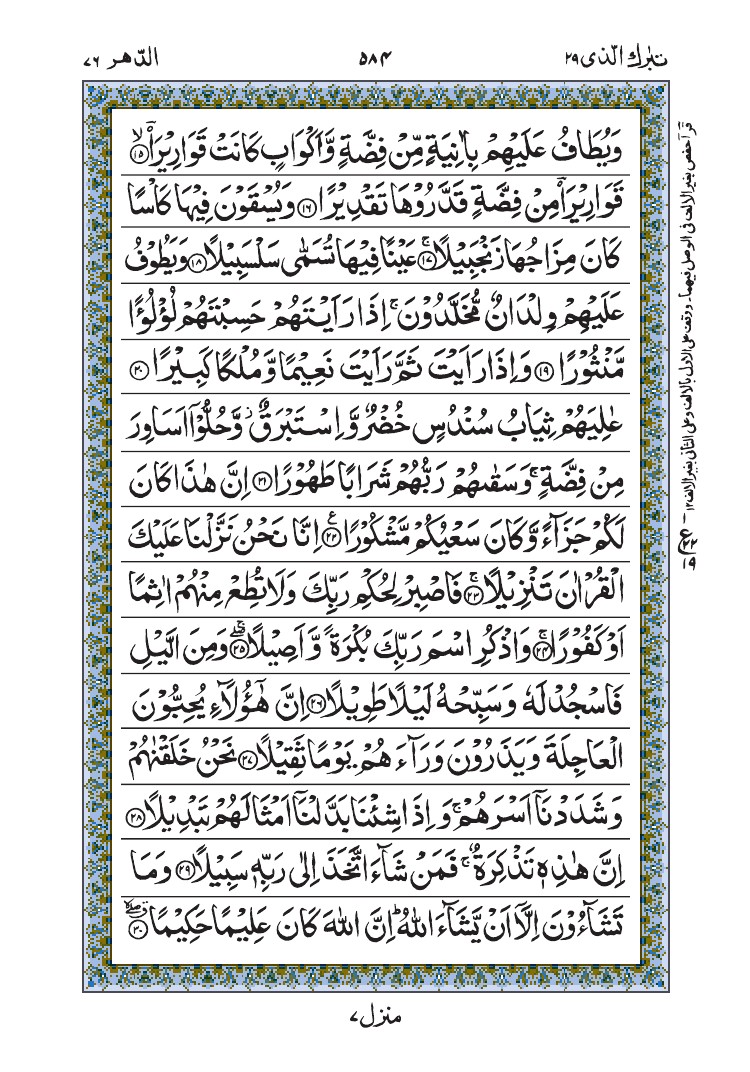 تبٰرك الّذى ٢٩
٥٨۴
الدّهر ٧٦
وَيُطَافُ عَلَيْهِمْ بِاٰنِيَةٍ مِّنْ فِضَّةٍ وَّاَكْوَابٍ كَانَتْ قَوَارِيْرَا۠ ۙ﴿١٥﴾
قَوَارِيْرَا۠ مِنْ فِضَّةٍ قَدَّرُوْهَا تَقْدِيْرًا ﴿١٦﴾ وَيُسْقَوْنَ فِيْهَا كَاْسًا
كَانَ مِزَاجُهَا زَنْجَبِيْلًا ۚ﴿١٧﴾ عَيْنًا فِيْهَا تُسَمّٰى سَلْسَبِيْلًا ﴿١٨﴾ وَيَطُوْفُ
عَلَيْهِمْ وِلْدَانٌ مُّخَلَّدُوْنَ ۚ اِذَا رَاَيْتَهُمْ حَسِبْتَهُمْ لُؤْلُؤًا
مَّنْثُوْرًا ﴿١٩﴾ وَاِذَا رَاَيْتَ ثَمَّ رَاَيْتَ نَعِيْمًا وَّمُلْكًا كَبِيْرًا ﴿٢٠﴾
عٰلِيَهُمْ ثِيَابُ سُنْدُسٍ خُضْرٌ وَّاِسْتَبْرَقٌ ۡ وَّحُلُّوْۤا اَسَاوِرَ
مِنْ فِضَّةٍ ۚ وَسَقٰىهُمْ رَبُّهُمْ شَرَابًا طَهُوْرًا ﴿٢١﴾ اِنَّ هٰذَا كَانَ
لَكُمْ جَزَآءً وَّكَانَ سَعْيُكُمْ مَّشْكُوْرًا ﴿٢٢﴾ اِنَّا نَحْنُ نَزَّلْنَا عَلَيْكَ
الْقُرْاٰنَ تَنْزِيْلًا ۚ﴿٢٣﴾ فَاصْبِرْ لِحُكْمِ رَبِّكَ وَلَا تُطِعْ مِنْهُمْ اٰثِمًا
اَوْ كَفُوْرًا ۚ﴿٢٤﴾ وَاذْكُرِ اسْمَ رَبِّكَ بُكْرَةً وَّاَصِيْلًا ۖۚ﴿٢٥﴾ وَمِنَ الَّيْلِ
فَاسْجُدْ لَهٗ وَسَبِّحْهُ لَيْلًا طَوِيْلًا ﴿٢٦﴾ اِنَّ هٰٓؤُلَآءِ يُحِبُّوْنَ
الْعَاجِلَةَ وَيَذَرُوْنَ وَرَآءَهُمْ يَوْمًا ثَقِيْلًا ﴿٢٧﴾ نَحْنُ خَلَقْنٰهُمْ
وَشَدَدْنَاۤ اَسْرَهُمْ ۚ وَاِذَا شِئْنَا بَدَّلْنَاۤ اَمْثَالَهُمْ تَبْدِيْلًا ﴿٢٨﴾
اِنَّ هٰذِهٖ تَذْكِرَةٌ ۚ فَمَنْ شَآءَ اتَّخَذَ اِلٰى رَبِّهٖ سَبِيْلًا ﴿٢٩﴾ وَمَا
تَشَآءُوْنَ اِلَّاۤ اَنْ يَّشَآءَ اللّٰهُ ؕ اِنَّ اللّٰهَ كَانَ عَلِيْمًا حَكِيْمًا ﴿٣٠﴾
قرأ حفص بغير الالف فى الوصل فيهما۔ ووقف على الاول بالالف وعلى الثانى بغير الالف ١٢
منزل ٧